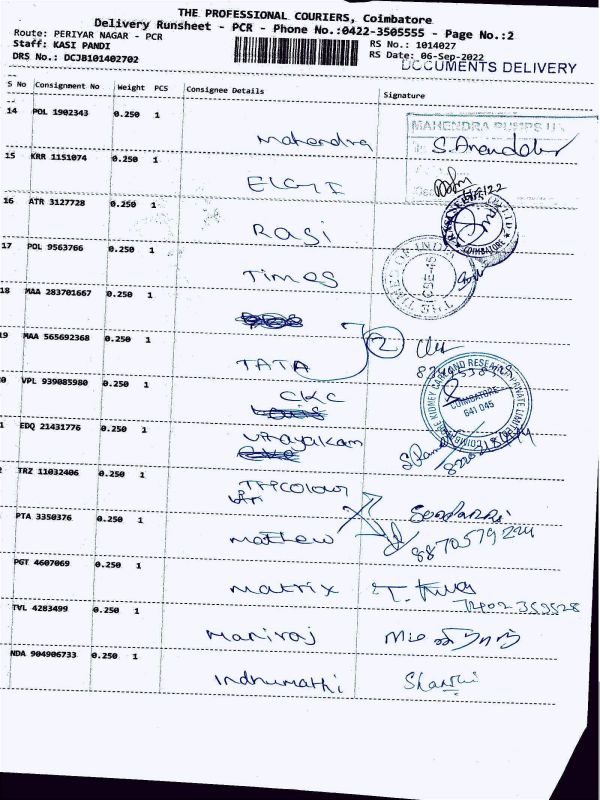 THE PROFESSIONAL COURIERS, Coimbatore
Delivery Runsheet - PCR - Phone No.:0422-3505555 - Page No.:2
Route: PERIYAR NAGAR - PCR
RS No.: 1014027
Staff: KASI PANDI
RS Date: 06-Sep-2022
DRS No.: DCJB101402702
DOCUMENTS DELIVERY
S No Consignment No Weight PCS Consignee Details Signature
14 POL 1902343 0.250 1
MAHENDRA PUMPS
Mahendra
15 KRR 1151074 0.250 1
ELGI
16 ATR 3127728 0.250 1
Rasi
COIMBATORE
17 POL 9563766 0.250 1
Times
THE TIMES OF INDIA
CBE-45
18 MAA 283701667 0.250 1
2
19 MAA 565692368 0.250 1
TATA
0 VPL 939085980 0.250 1
CKC
COIMBATORE KIDNEY CARE AND RESEARCH PRIVATE LIMITED
COIMBATORE
641 045
1 EDQ 21431776 0.250 1
Vinayakam
2 TRZ 11032406 0.250 1
Tricolour
PTA 3350376 0.250 1
Mathew
8870579224
PGT 4607069 0.250 1
Matrix
TVL 4283499 0.250 1
Maniraj
NDA 904906733 0.250 1
Indhumathi